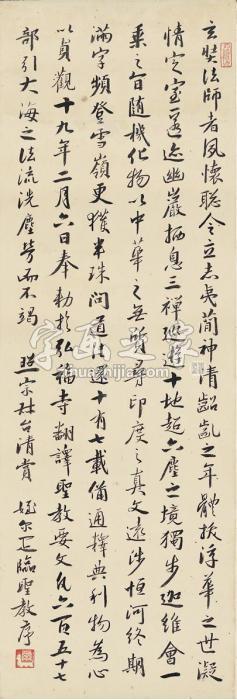 玄奘法師者夙懷聰令立志夷簡神清齠齔之年體拔浮華之世凝
情定室匿迹幽巖栖息三禪巡遊十地超六塵之境獨步迦維會一
乘之旨隨機化物以中華之無質尋印度之真文遠涉恒河終期
滿字頻登雪嶺更獲半珠問道往還十有七載備通釋典利物為心
以貞觀十九年二月六日奉勅於弘福寺翻譯聖教要文凡六百五十七
部引大海之法流洗塵勞而不竭 宗 台清賞 臨聖教序